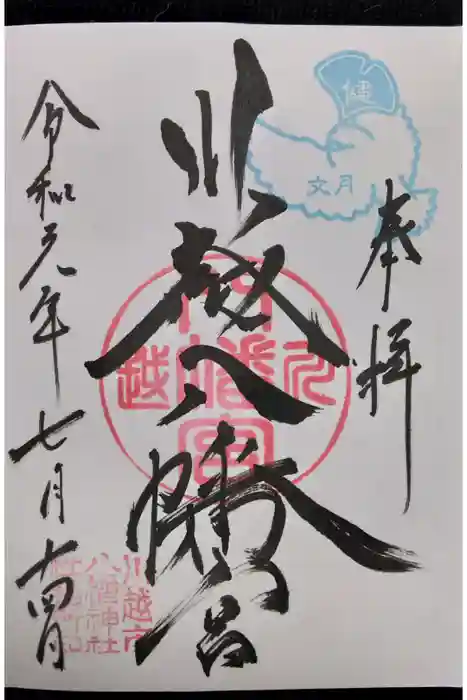 奉拝
文月
川越八幡宮
令和元年七月十四日
川越市
八幡神社